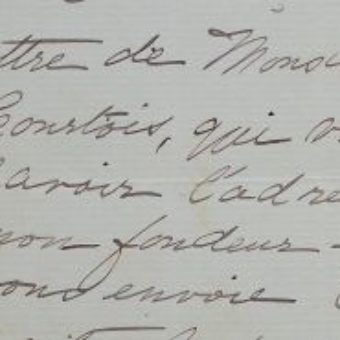 ttre de Mons
Courtois, qui v
avoir l'adre
mon fondeur -
ous envoie